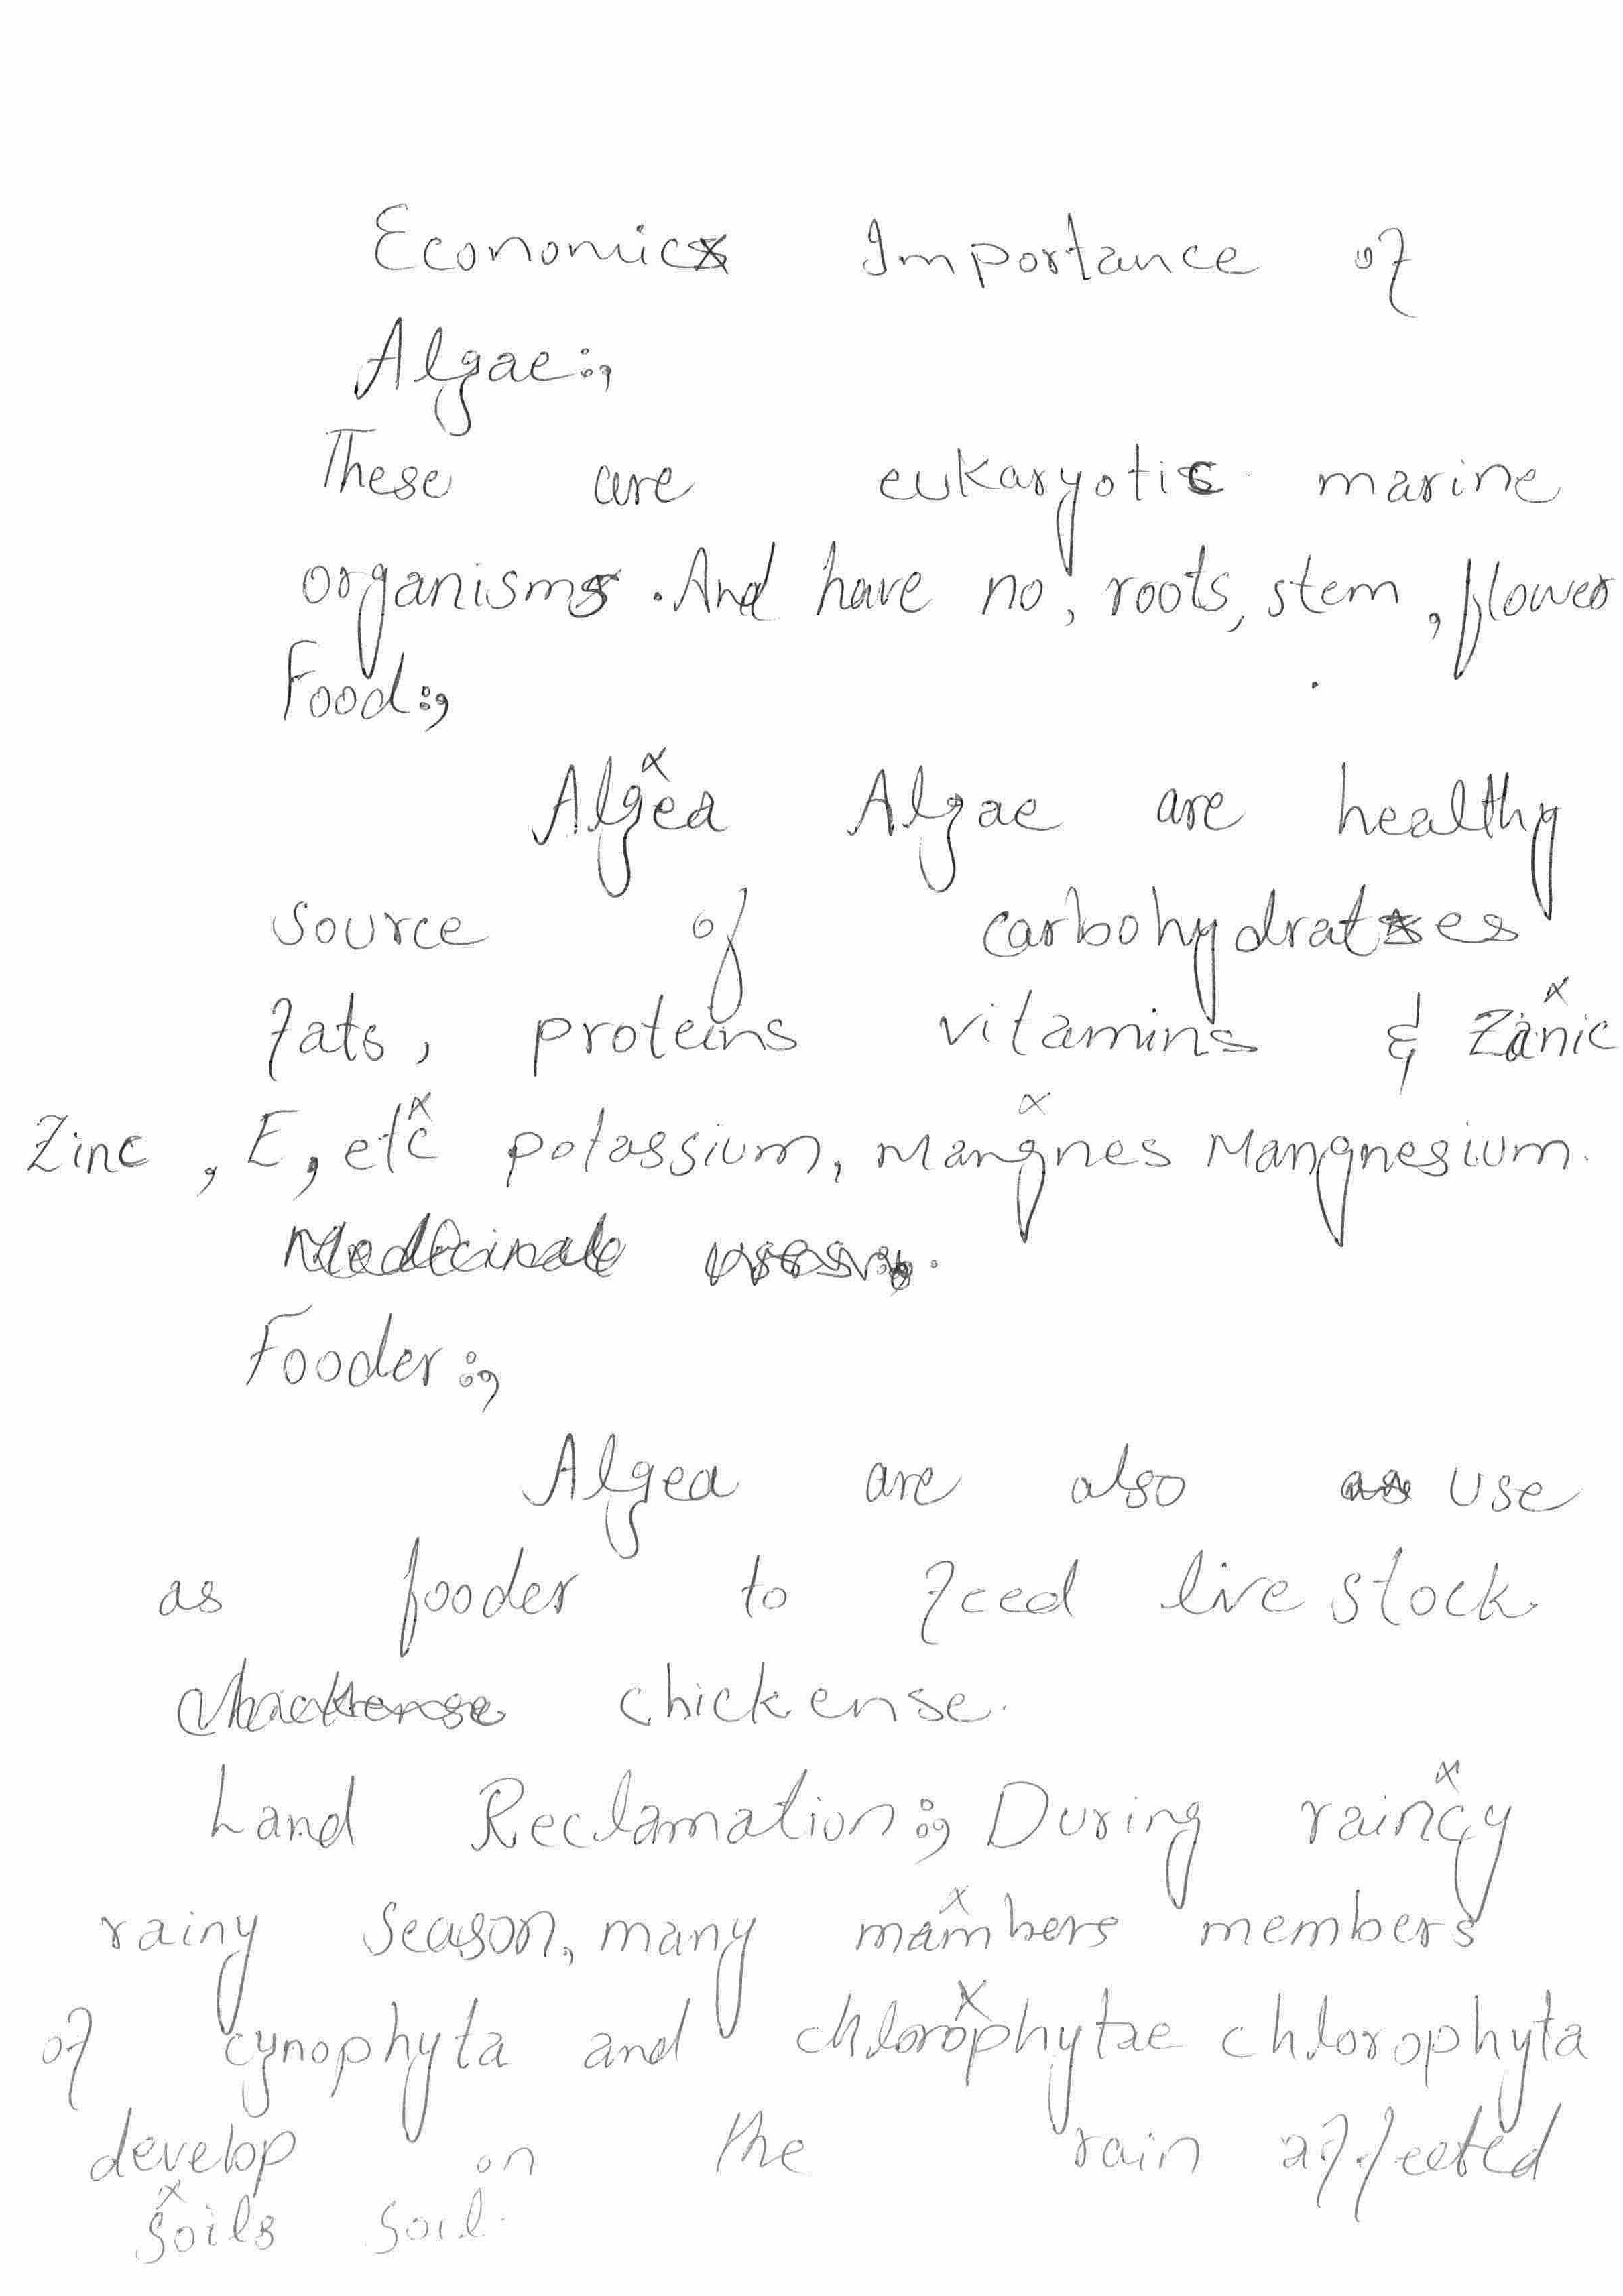 Economics Importance of
Algae:,
These are eukaryotic marine
organisms. And have no, roots, stem, flower
Food:,
Algea Algae are healthy
source of carbohydrates
fats, proteins vitamins & Zanic
Zinc, E, etc potassium, Mangnes Mangnesium.
Medicinale uses:,.
Fooder:,
Algea are also as use
as fooder to feed live stock
chickense chickense.
Land Reclamation:, During raincy
rainy season, many mambers members
of cynophyta and chlorophytae chlorophyta
develop on the rain affected
soils soil.